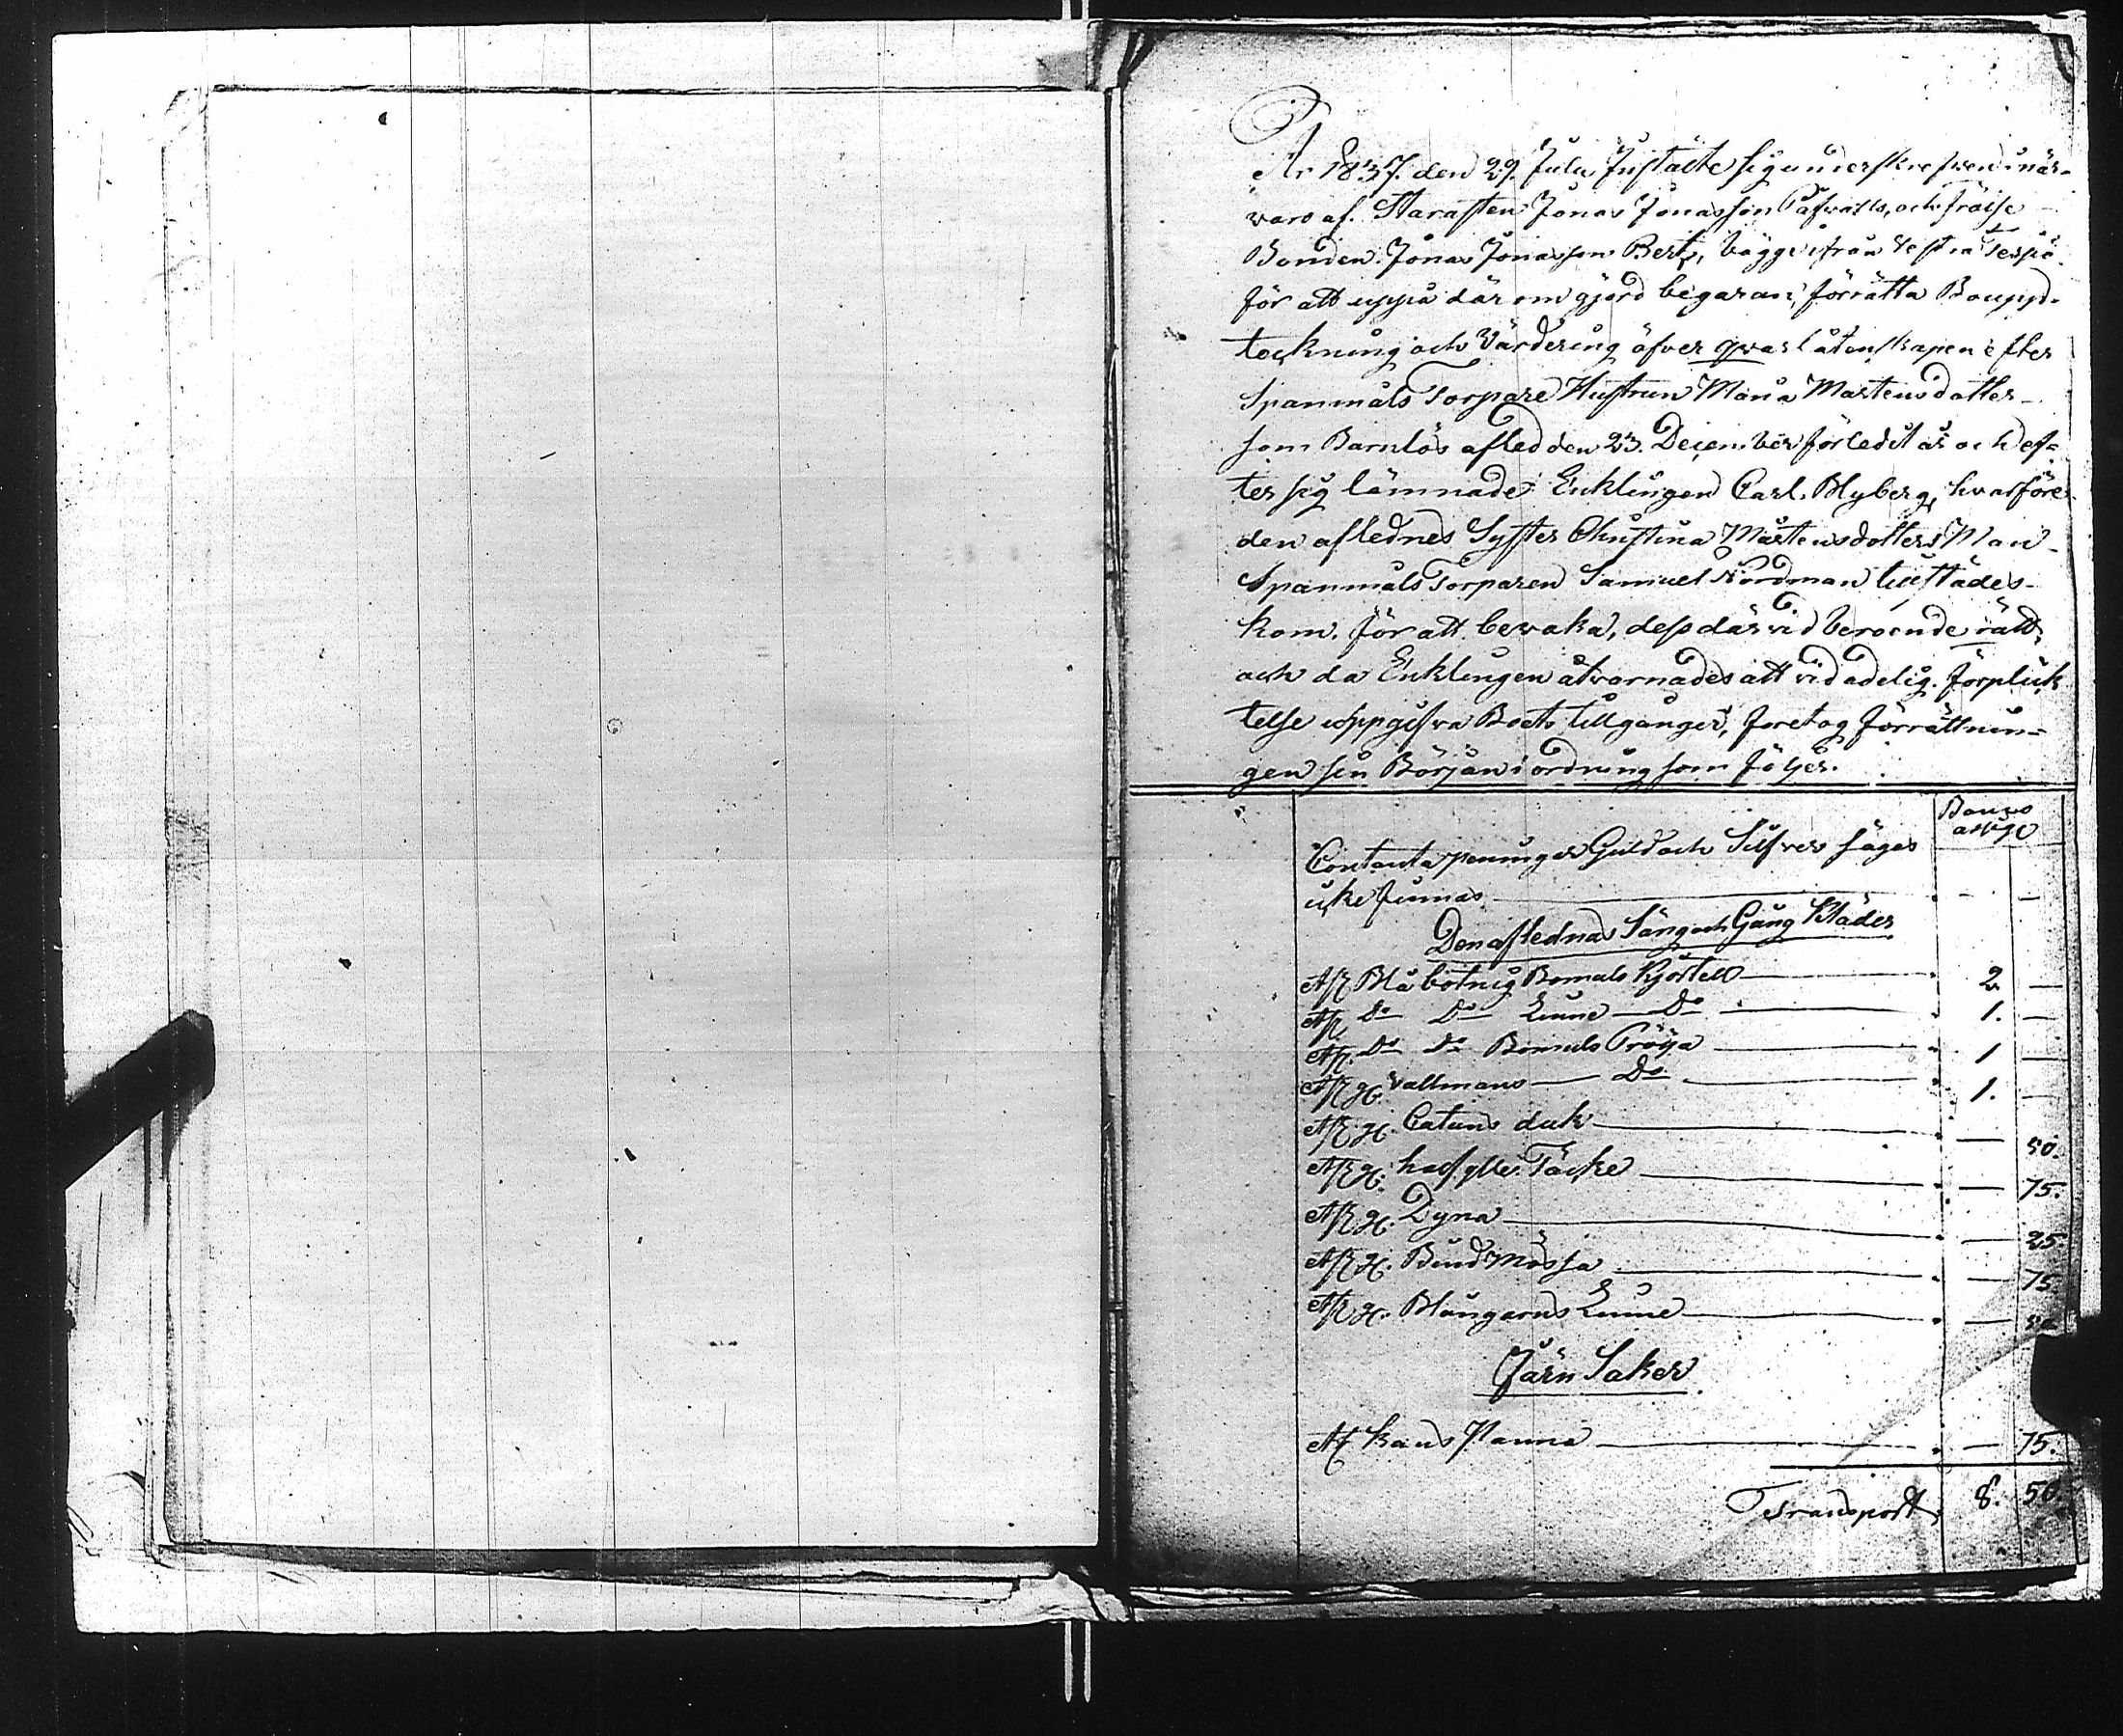 År 1837. den 29. Julii Instälte sig underskrefven i när-
varo af. Starasten Jonas Jonasson och fräise
Bonden. Jonas Jonasson Bert, bägge ifrån Vestra
för att uppå där om gjord begäran, förrätta Boupp-
teckning och Värdering öfver qvarlåtenskapen efter
Spanmåls Torpare Hustrun Maria Mårtensdotter
som Barnlös afled den 23. December förledit år och ef-
ter sig lämnade Enklingen Carl. Blyberg, hvarföre
den aflednes Syster Christina Mårtensdotters Man
Spanmåls Torparen Samuel Nordman tillstädes-
kom. för att bevaka, dess därvid beroende rätt,
och då Enklingen åtvarnades att vid edelig. förplick
telse uppgifva Boets tillgånger, företog förrättnin-
gen sin Början i ordning som följer.
Banco
Contanta penningar Guld och Silfver säges
icke finnas — —
Den aflednas Säng och Gång Kläder
Blå botnig Bomuls Kjortell 2. —
Do Do Linne Do 1. —
Do Do Bomuls Tröija 1 —
g. Vallmans Do 1. —
g. Catuns duk — 50.
g. Täcke — 75.
g. Dyna — 25.
g. Bindmössa — 75.
g. Blångarns Linne —
Järn Saker
Panna — 75.
Transport, 8. 50.